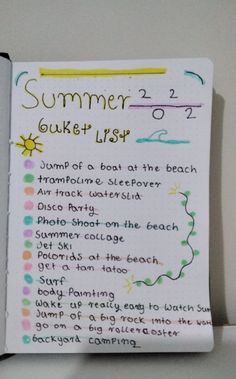 Summer 2 2
0 2
Buket List
Jump of a boat at the beach
trampoline sleepover
Air track waterslid
Disco Party
Photo Shoot on the beach
Summer collage
Jet Ski
Polorids at the beach
get a tan tatoo
Surf
body Painting
wake up really easy to watch Sun
Jump of a big rock into the
go on a big rollercoster
backyard camping